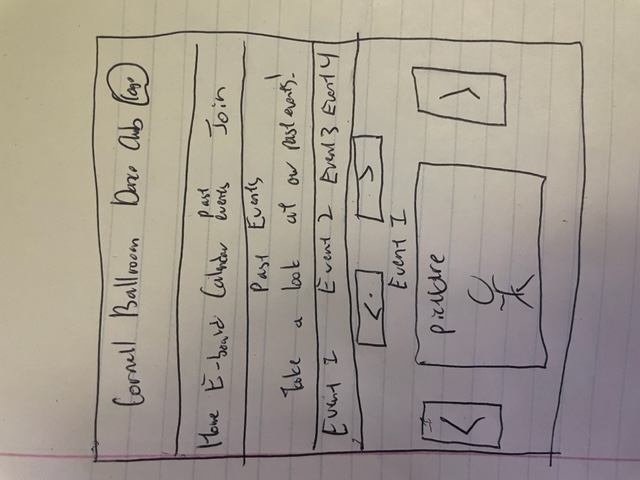 Cornell Ballroom Dance Club logo
Home E-board Calendar Past events Join
Past Events
Take a look at our past events!
Event 1 Event 2 Event 3 Event 4
< >
Event 1
< picture >